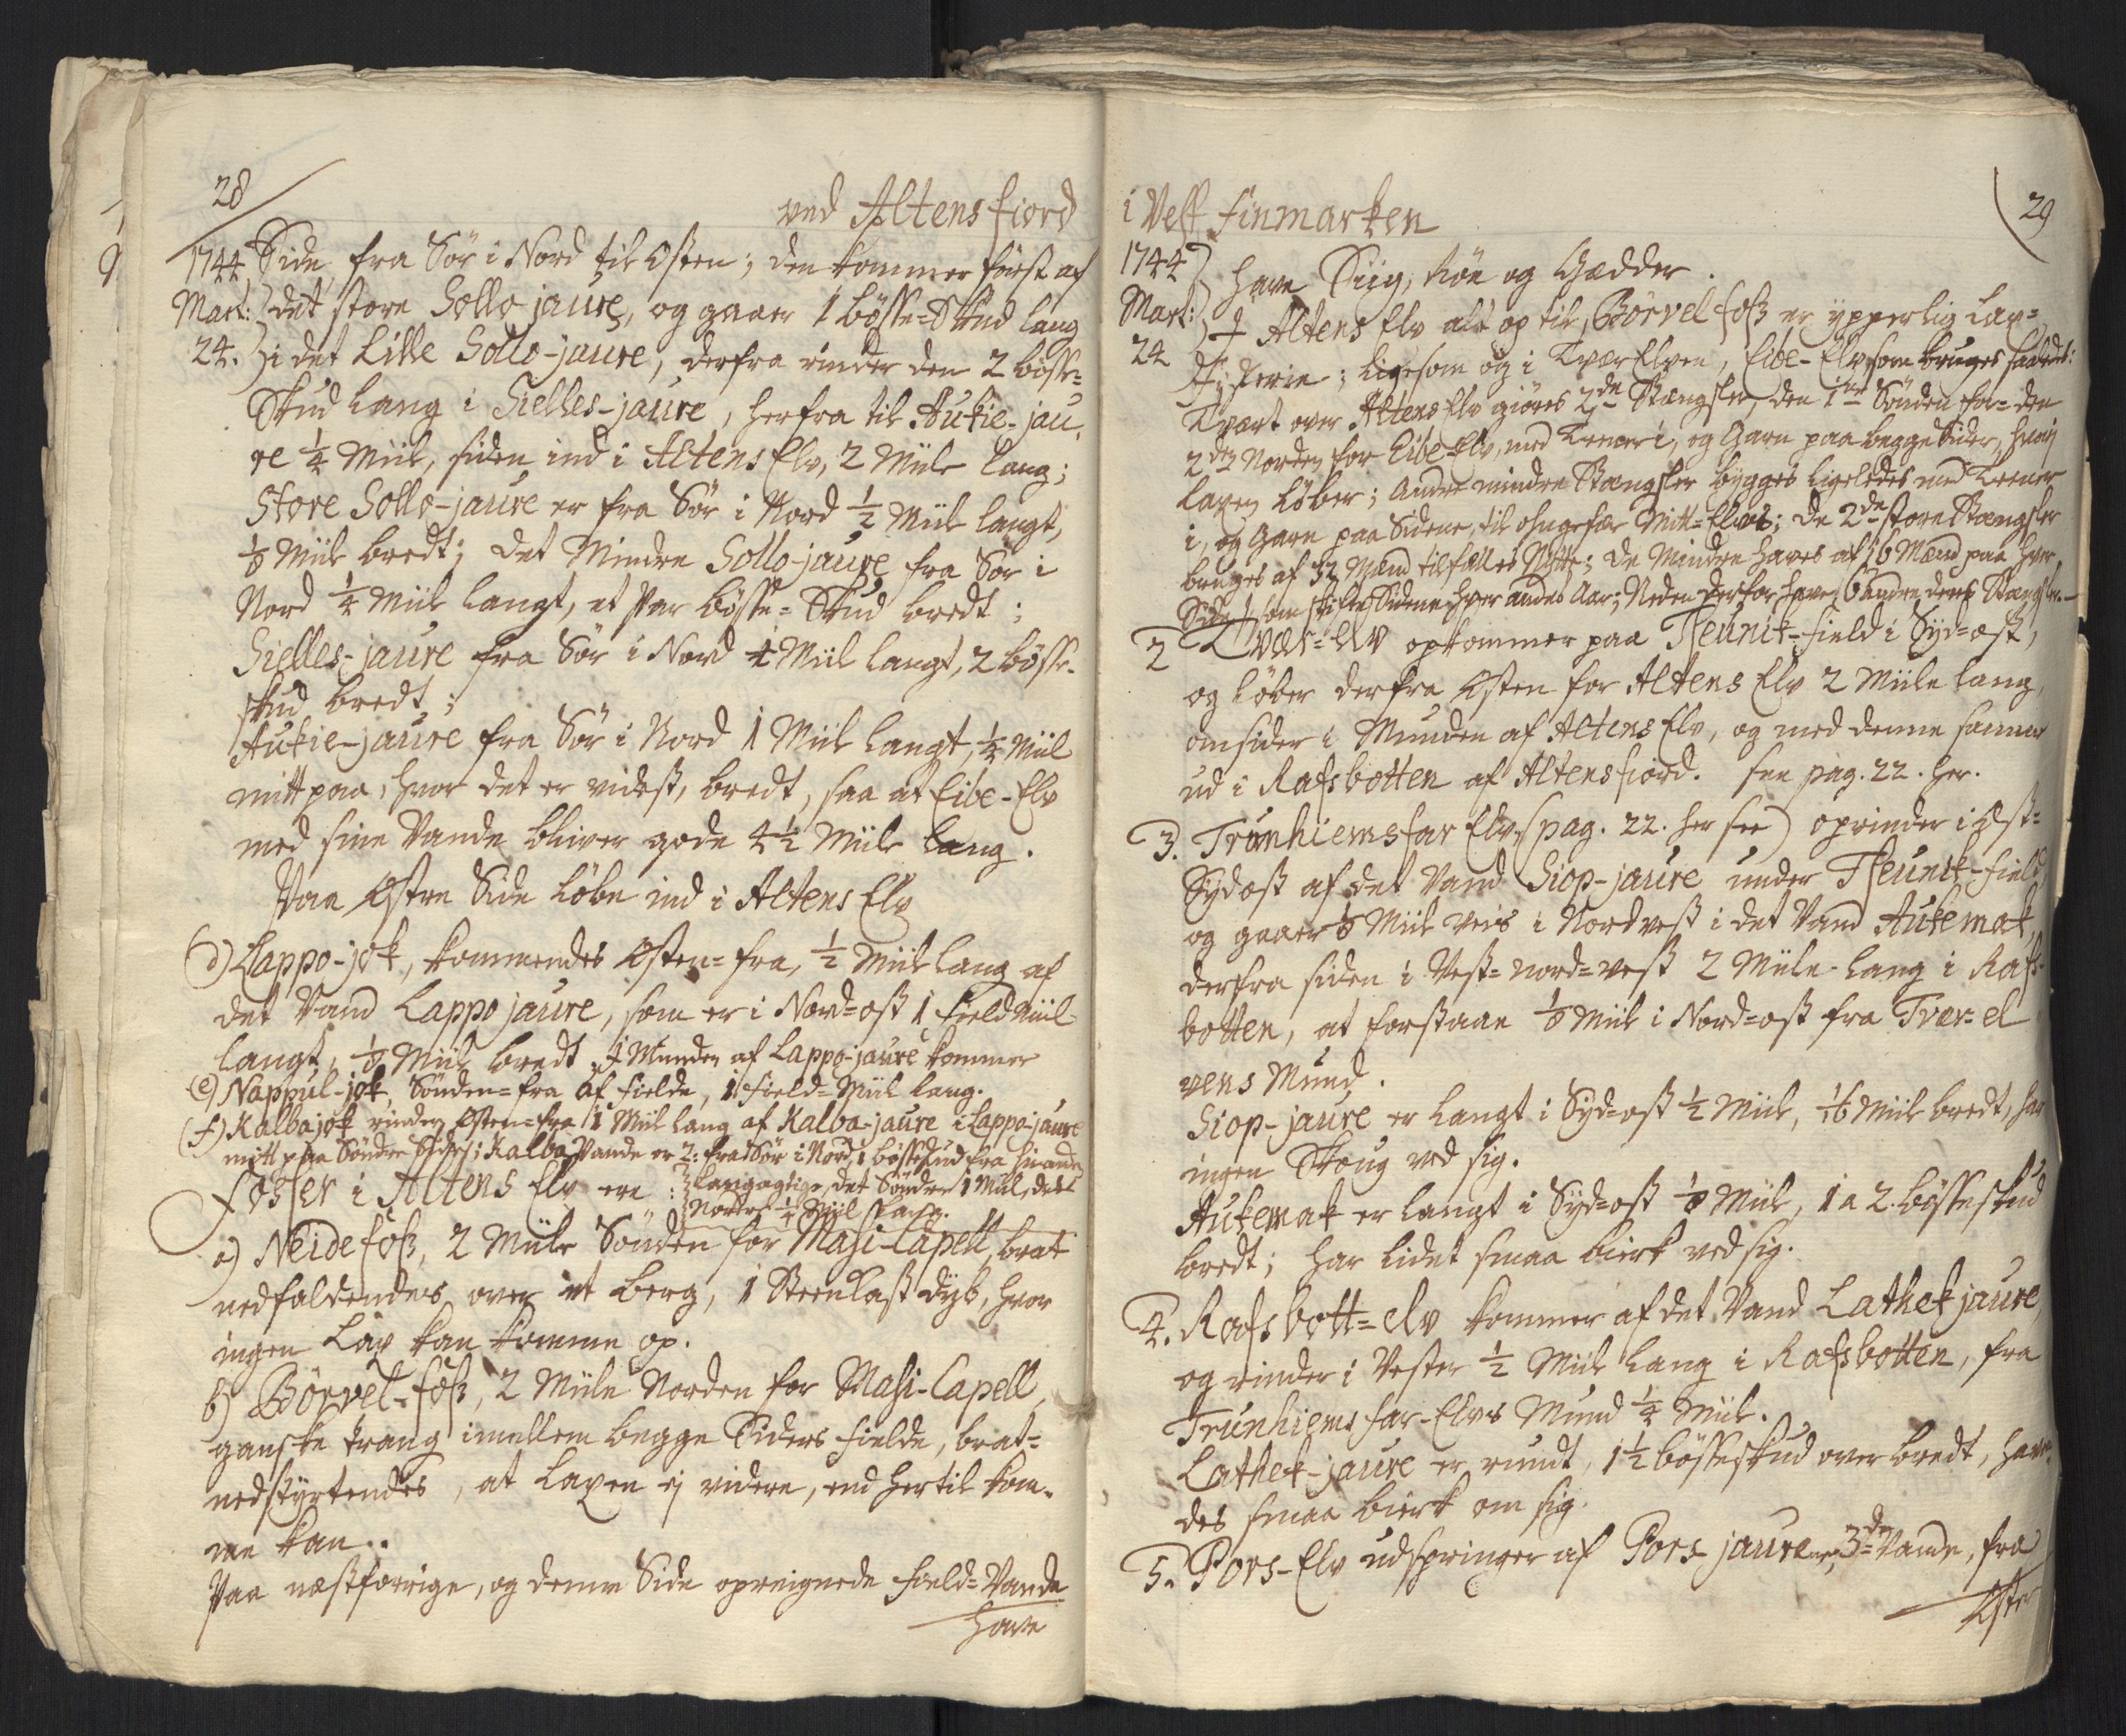 28
ved Altens fiord
1744 Side fra Sør i Nord til Østen; den kommer først af
Mart: det store Sollo-jaure, og gaaer 1 bösse-Skud lang
24. i det Lille Sollo-jaure, derfra rinder den 2 bösse-
Skud lang i Sielles-jaure, herfra til Aukie-jau-
re ¼ Miil, siden ind i Altens Elv, 2 Miile lang;
Store Sollo-jaure er fra Sør i Nord ½ Miil langt,
⅛ Miil bredt; det Mindre Sollo-jaure fra Sør i
Nord ¼ Miil langt, et Par bösse-Skud bredt;
Sielles-jaure fra Sør i Nord ¼ Miil langt, 2 bösse-
skud bredt;
Aukie-jaure fra Sør i Nord 1 Miil langt, ¼ Miil
mitt paa, hvor det er videst, bredt, saa at Eibe-Elv
med sine Vande bliver gode 4½ Miile lang.
Paa Østre Side løbe ind i Altens Elv
d) Lappo-jok, kommendes Østen-fra, ½ Miil lang af
det Vand Lappojaure, som er i Nord-ost 1 field Miil
langt, ⅛ Miil bredt. I Munden af Lappo-jaure kommer
(e) Nappul-jok, Sønden-fra af fielde, 1 field-Miil lang.
(f) Kalbajok rinder Østen-fra 1 Miil lang af Kalba-jaure i Lappo-jaure
mitt paa Søndre Side; Kalba Vande er 2: fra Sør i Nord, 1 bösseskud fra hinanden
langagtige, det Søndre 1 Miil, det
Nordre ¼ Miil lang.
fosser i Altens Elv ere:
a) Neidefoss, 2 Miile Sønden for Masi-Capell, brat
nedfaldendes over et Berg, 1 Steenkast dyb, hvor
ingen Lax kan komme op.
b) Börvel-foss, 2 Miile Norden for Masi-Capell,
ganske trang imellem begge Siders fielde, brat-
nedstyrtendes, at Laxen ej videre, end hertil kom-
me kan..
Paa næstforrige, og denne Side opreignede field-Vande
have
i Vest finmarken
29
1744 have Siig, Röe og Giædder.
Mart: I Altens Elv alt op til Börvel foss er ypperlig Lax-
24 fiskerie; ligesom og i Tvær Elven, Eibe-Elv som bruges
Tvært over Altens Elv giöres 2de Stængsler, den 1ne Sønden for- den
2den Norden for Eibe-Elv, med Teener i, og Garn paa begge Sider, hvori
Laxen løber; Andre mindre Stængsler bygges ligeledes med Teener
i, og Garn paa Sidene, til ohngefær Mitt-Elvs; De 2de store Stængsler
bruges af 32 Mænd til fælles Nytte; De Mindre haves af 16 Mænd paa hver
Side, som skifte Sidene hver andet Aar; Neden derfor have andre deres Stængsler.
2 Tvær-elv opkommer paa Tseunik-field i Syd-ost,
og løber derfra Østen for Altens Elv 2 Miile lang,
omsider i Munden af Altens Elv, og med denne sammen
ud i Rafsbotten af Altensfiord. see pag. 22. her.
3. Trunhiemsfar Elv (pag. 22. her see) oprinder i Ost-
Sydost af det Vand Siop-jaure under Tseunik-field,
og gaaer ⅛ Miil veis i Nordvest i det Vand Aukemak,
derfra siden i Vest-nord-vest 2 Miile lang i Rafs-
botten, at forstaae ⅛ Miil i Nord-ost fra Tvær-el
vens Mund.
Siop-jaure er langt i Syd-ost ½ Miil, 1/16 Miil bredt, har
ingen Skoug ved sig.
Aukemak er langt i Syd-ost ⅛ Miil, 1 a 2. bösseskud
bredt; har lidet smaa birk ved sig.
4. Rafsbott-elv kommer af det Vand Lathekjaure,
og rinder i Vester ½ Miil lang i Rafsbotten, fra
Trunhiemsfar-Elvs Mund ¼ Miil.
Lathek-jaure er rundt, 1½ bösseskud over bredt, haven-
des smaa birk om sig.
5. Pors-Elv udspringer af Pors jaure, 3de Vande, fra
Øster